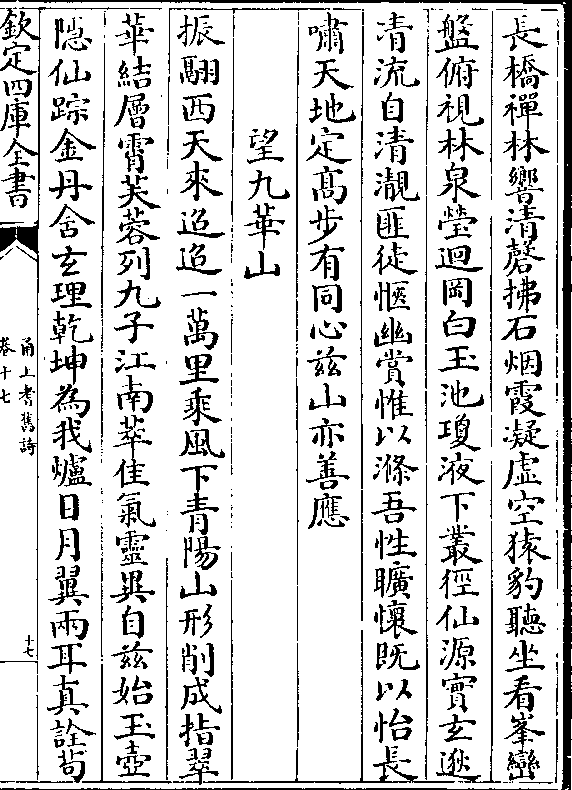 長橋禪林響清磬拂石烟霞凝虚空猿豹聽坐看峯巒
盤俯視林泉瑩迴岡白玉池瓊液下叢徑仙源實玄逖
清流自清靚匪徒愜幽賞惟以滌吾性曠懷既以怡長
嘯天地定髙步有同心兹山亦善應
望九華山
振翮西天來迢迢一萬里乘風下青陽山形削成指翠
華結層霄芙蓉列九子江南萃佳氣靈異自兹始玉壺
隠仙踪金丹含玄理乾坤為我爐日月翼兩耳真詮茍
欽定四庫全書
甬上耆舊詩
卷十七
十七